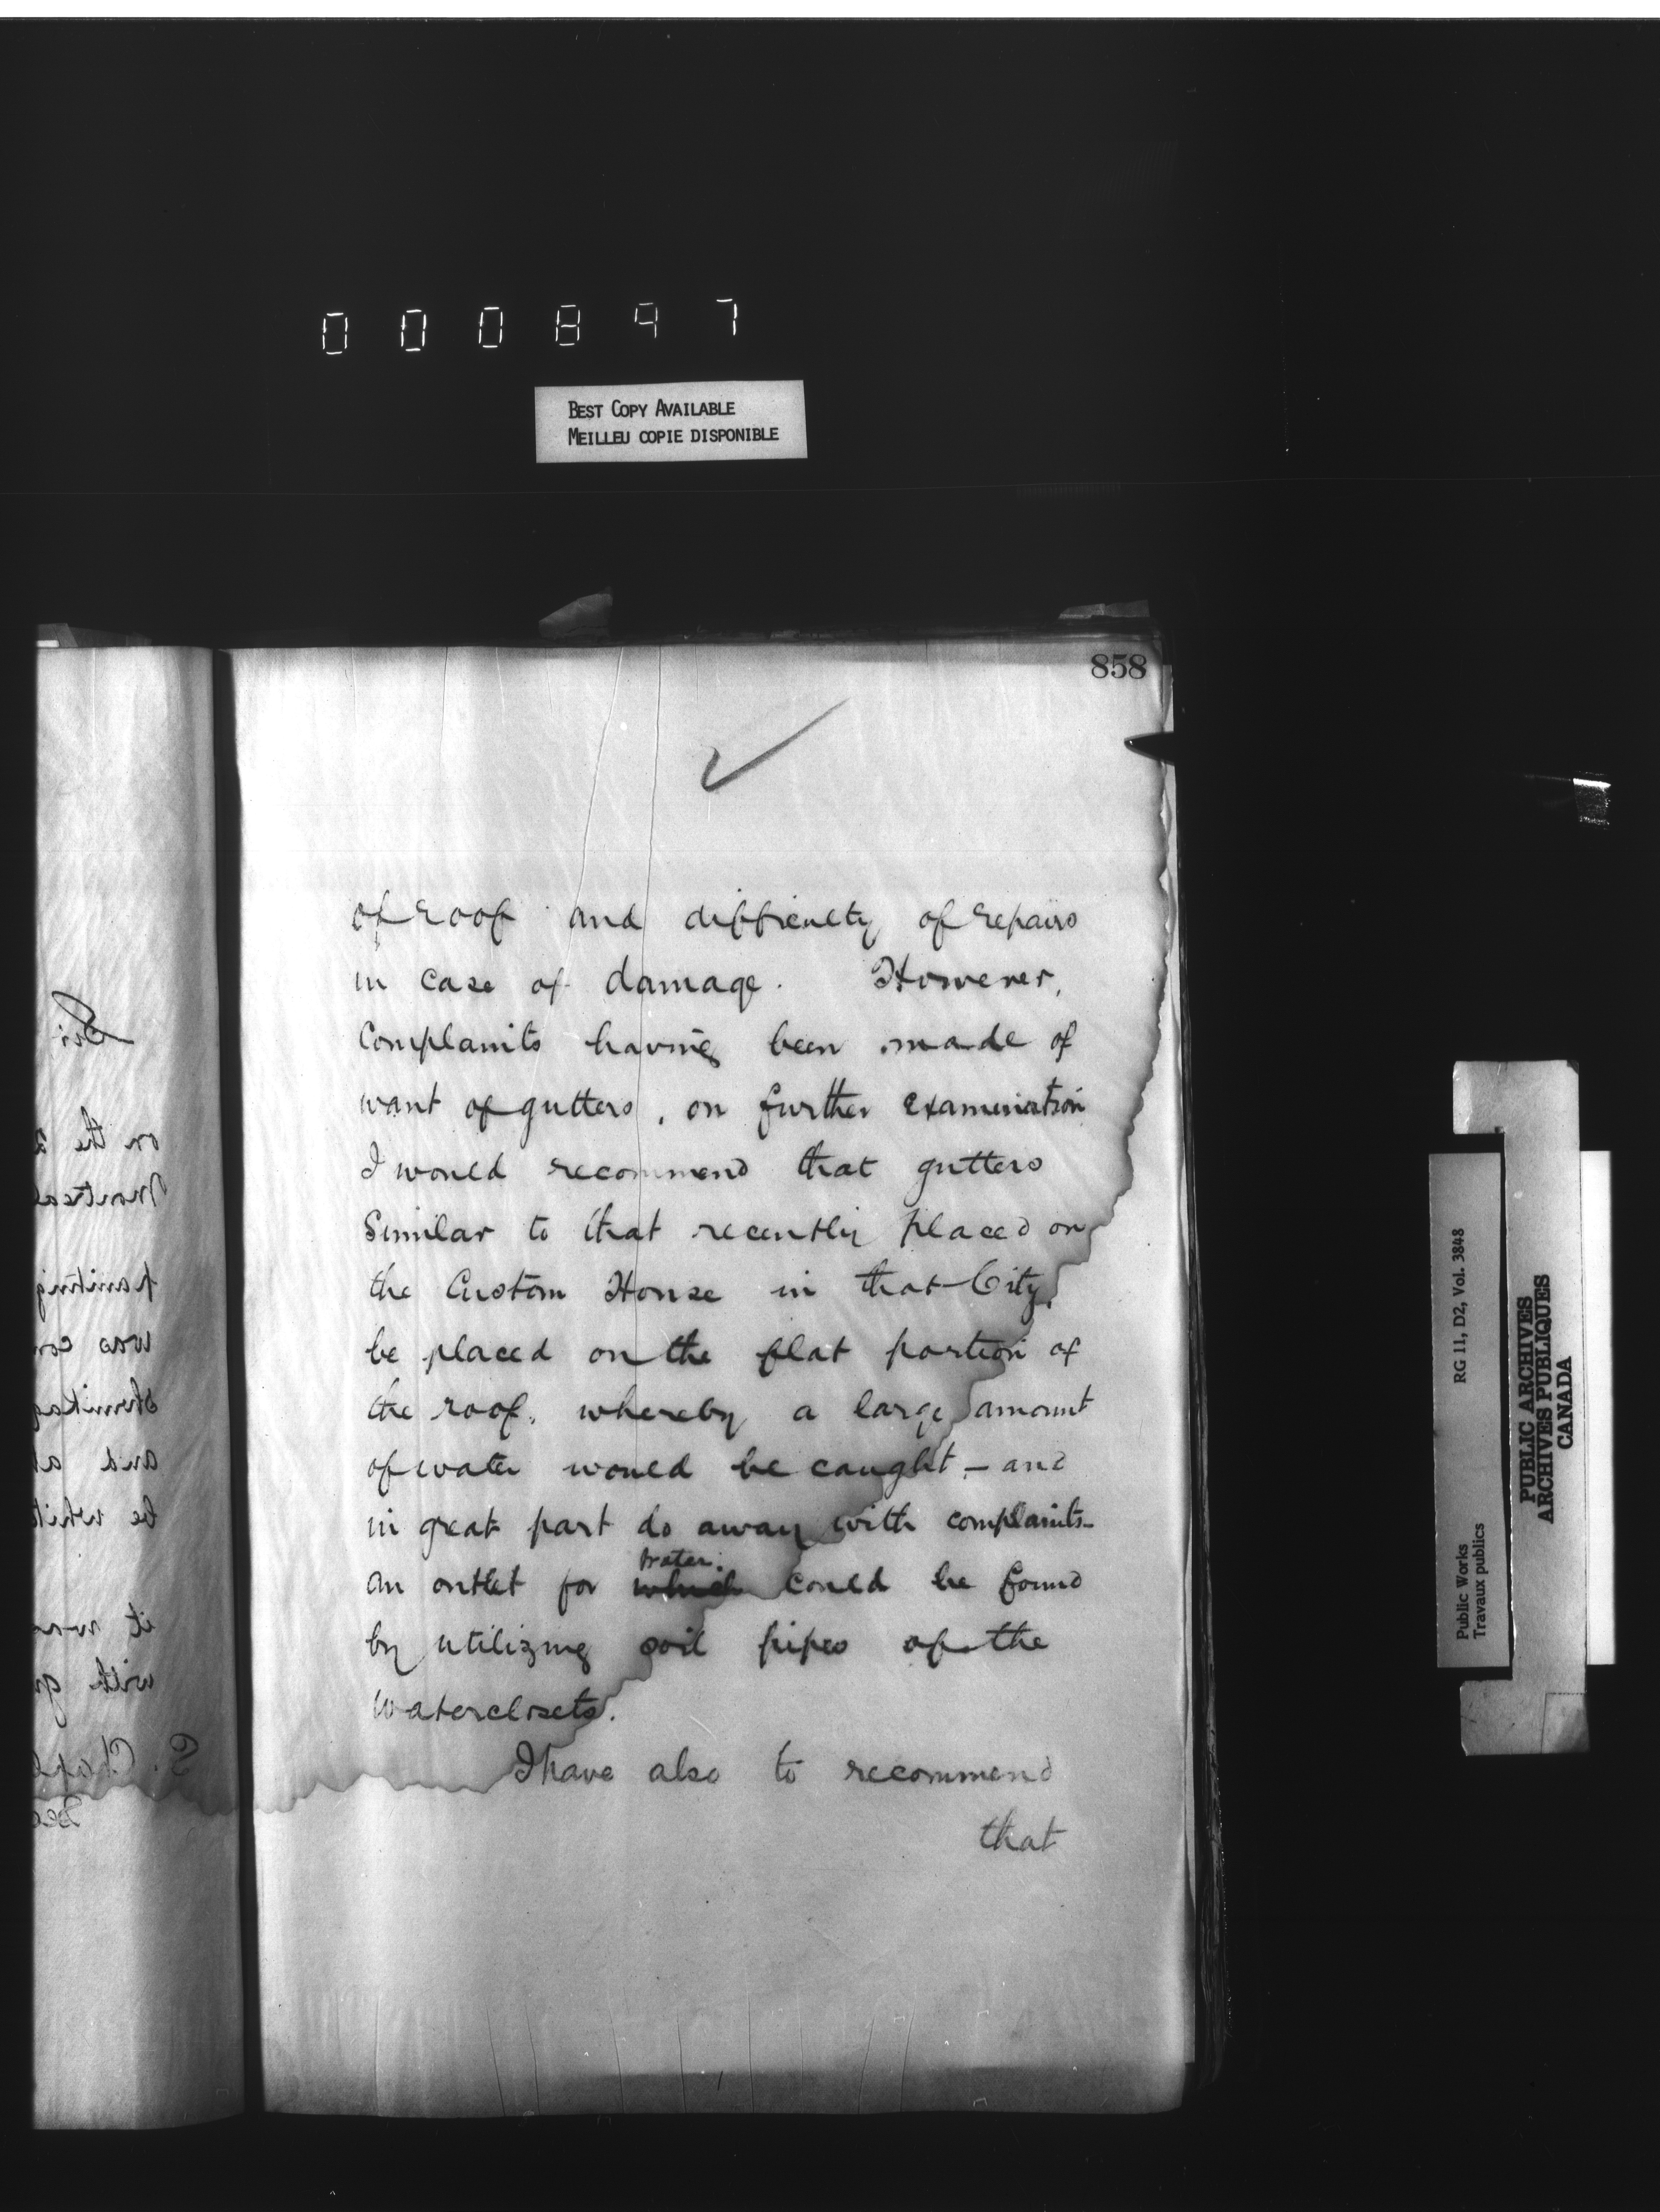 000897
BEST COPY AVAILABLE
MEILLEU COPIE DISPONIBLE
858
of roof and difficulty of repairs
in case of damage. However,
Complaints having been made of
want of gutters, on further examination
I would recommend that gutters
Similar to that recently placed on
the Custom House in that City,
be placed on the flat portion of
the roof, whereby a large amount
of water would be caught – and
in great part do away with complaints –
an outlet for which water could be found
by utilizing soil pipes of the
Waterclosets.
I have also to recommend
that
Sir
on the
Montreal
painting
was
and
be
it
with
Public Works
Travaux publics
RG 11, D2, Vol. 3848
PUBLIC ARCHIVES
ARCHIVES PUBLIQUES
CANADA